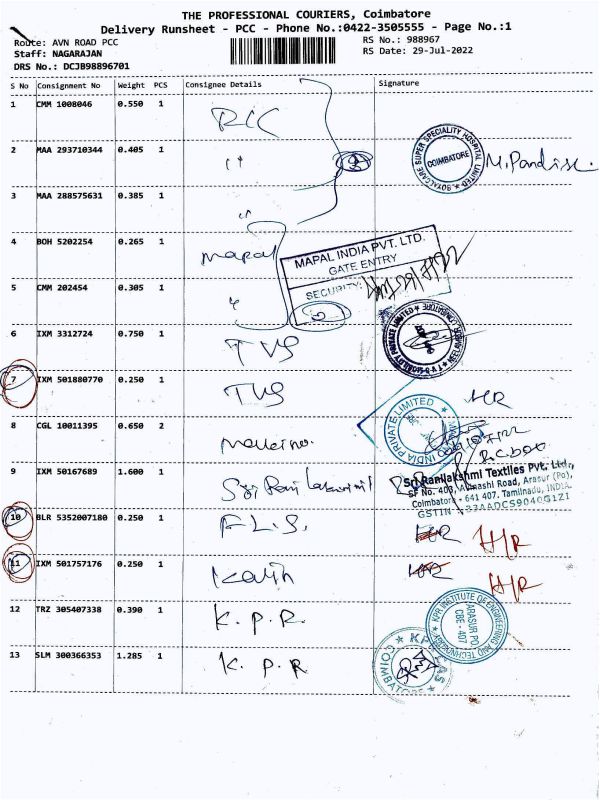 THE PROFESSIONAL COURIERS, Coimbatore
Delivery Runsheet - PCC - Phone No.:0422-3505555 - Page No.:1
Route: AVN ROAD PCC
RS No.: 988967
Staff: NAGARAJAN
RS Date: 29-Jul-2022
DRS No.: DCJB98896701
S No Consignment No Weight PCS Consignee Details Signature
1 CMM 1008046 0.550 1
2 MAA 293710344 0.405 1 " ROYALCARE SUPER SPECIALITY HOSPITAL LIMITED COIMBATORE
3 MAA 288575631 0.385 1 "
4 BOH 5202254 0.265 1 Mapal
MAPAL INDIA PVT. LTD.
GATE ENTRY
SECURITY:
5 CMM 202454 0.305 1 "
6 IXM 3312724 0.750 1 TVS
7 IXM 501880770 0.250 1 TVS
8 CGL 10011395 0.650 2 INDIA PRIVATE LIMITED
9 IXM 50167689 1.600 1 Sri Rani Lakshmi
Sri Ranilakshmi Textiles Pvt. Ltd.,
SF No. 403, Avinashi Road, Arasur (Po),
Coimbatore - 641 407. Tamilnadu, INDIA.
GSTIN : 33AADCS9040G1Z1
10 BLR 5352007180 0.250 1 F.L.S. H/R
11 IXM 501757176 0.250 1 H/R
12 TRZ 305407338 0.390 1 K.P.R. KPR INSTITUTE OF ENGINEERING AND TECHNOLOGY ARASUR PO CBE - 407
13 SLM 300366353 1.285 1 K.P.R COIMBATORE